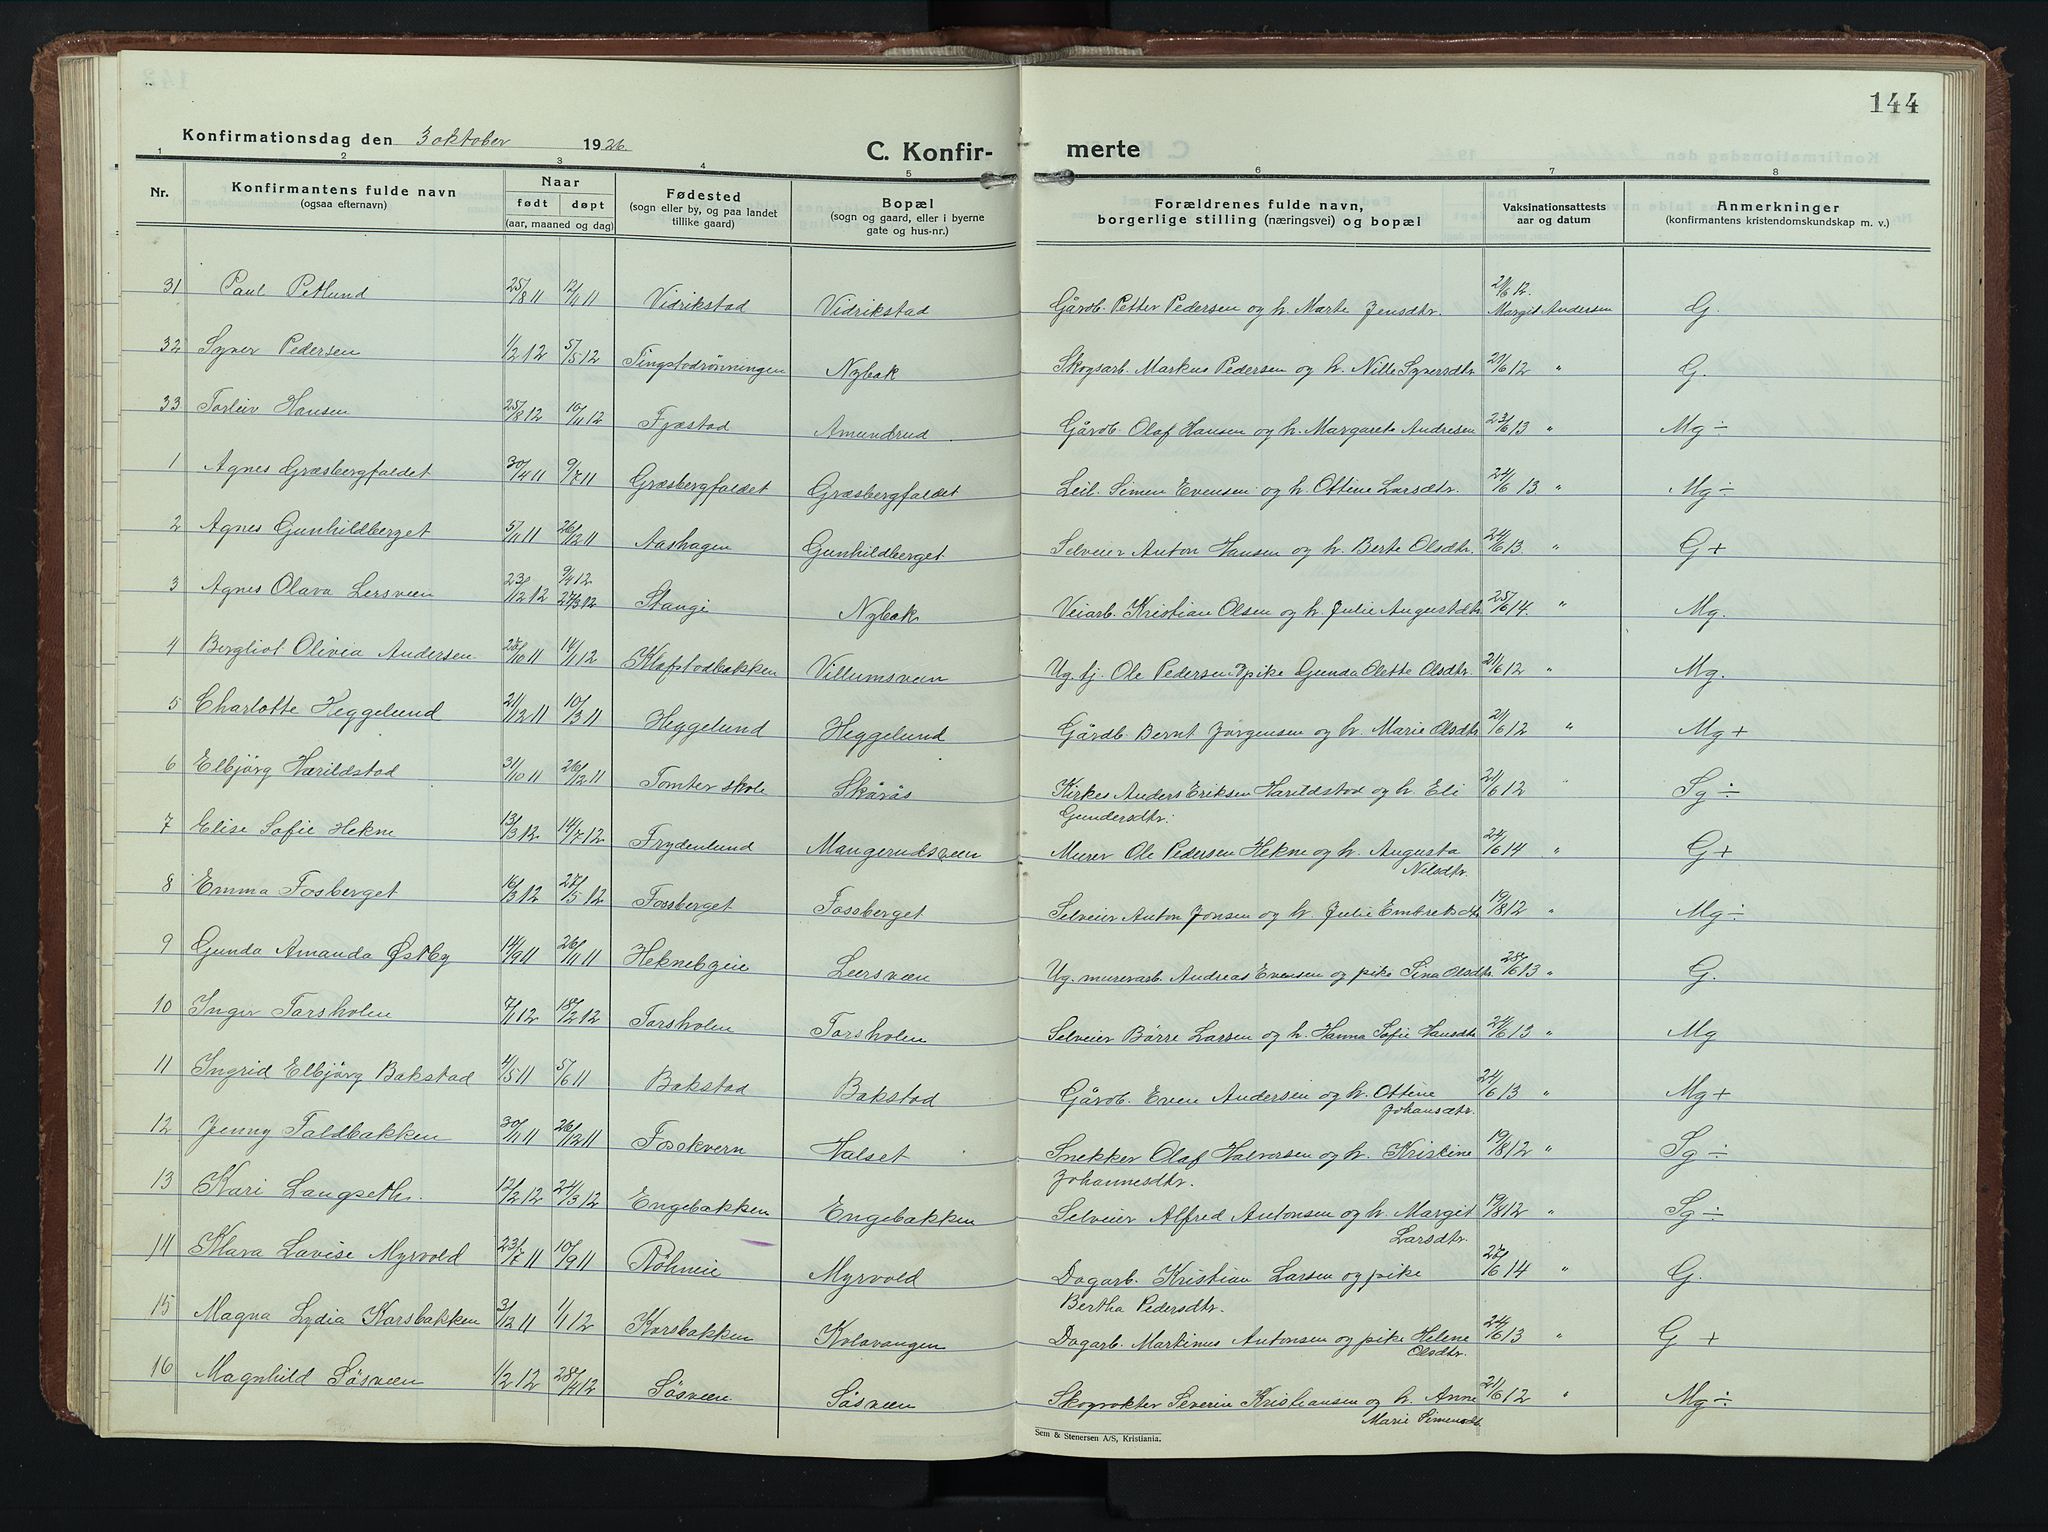 144
Konfirmationsdag den 3 oktober 1926.
C. Konfir- merte
1 2 3 4 5 6 7 8
Nr. Konfirmantens fulde navn (ogsaa efternavn) Naar født døpt (aar, maaned og dag) Fødested (sogn eller by, og paa landet tillike gaard) Bopæl (sogn og gaard, eller i byerne gate og hus-nr.) Forældrenes fulde navn, borgerlige stilling (næringsvei) og bopæl Vaksinationsattests aar og datum Anmerkninger (konfirmantens kristendomskundskap m. v.)
31 Paul Petlund 25/8 11 12/11 11 Vidrikstad Vidrikstad Gårdb. Petter Pedersen og h. Marte Jensdtr. 21/6 12. Margit Andersen G.
32 Syver Pedersen 1/2 12 5/5 12 Tingstadrønningen Nybak Skogsarb. Markus Pedersen og h. Nille Syversdtr 21/6 12 " G.
33 Torleiv Hansen 25/8 12 10/11 12 Fjæstad Amundrud Gårdb. Olaf Hansen og h. Margarete Andresen 23/6 13 " Mg ÷
1 Agnes Græsbergfaldet 30/4 11 9/7 11 Græsbergfaldet Græsbergfaldet Leil. Simen Evensen og h. Ottine Larsdtr. 24/6 13 " Mg ÷
2 Agnes Gunhildberget 5/11 11 26/12 11 Aashagen Gunhildberget Selveier Anton Hansen og h. Berte Olsdtr. 24/6 13. " G +
3 Agnes Olava Lersveen 23/12 12 9/4 12 27/3 12 Stangi Nybak Veiarb. Kristian Olsen og h. Julie Augustdtr 25/6 14. " Mg.
4 Bergliot Olivia Andersen 25/10 11 14/1 12 Klæfstadbakken Villumsveen Ug. tj. Ole Pedersen, pike Gunda Olette Olsdtr. 21/6 12 " Mg.
5 Charlotte Heggelund 21/12 11 10/3 11 Heggelund Heggelund Gårdb. Bernt Jørgensen og h. Marie Olsdtr 21/6 12 " Mg +
6 Elbjörg Harildstad 31/10 11 26/12 11 Tomter skole Skårås Kirkes Anders Eriksen Harildstad og h. Eli Gundersdtr. 21/6 12 " Sg ÷
7 Elise Sofie Hekne 13/3 12 14/7 12 Frydenlund Mangerudsveen Murer Ole Pedersen Hekne og h. Augusta Nilsdtr. 24/6 14 " G +
8 Emma Fosberget 16/3 12 27/5 12 Fossberget Fossberget Selveier Anton Jonsen og h. Julie Embretsdtr 19/8 12 " Mg ÷
9 Gunda Amanda Østby 14/9 11 26/11 11 Heknebyeie Leersveen Ug. murerarb. Andreas Evensen og pike Sina Olsdtr. 28/6 13 " G.
10 Inger Torsholen 7/1 12 18/2 12 Torsholen Torsholen Selveier Børre Larsen og h. Hanna Sofie Hansdtr 24/6 13 " Mg
11 Ingrid Elbjörg Bakstad 4/5 11 5/6 11 Bakstad Bakstad Gårdb. Even Andersen og h. Ottine Johansdtr. 24/6 13 " Mg +
12 Jenny Faldbakken 30/11 11 26/12 11 Fosskvern Halset Snekker Olaf Halvorsen og h. Kristine Johannesdtr. 19/8 12 " Sg ÷
13 Kari Langseth. 12/2 12 24/3 12 Engebakken Engebakken Selveier Alfred Antonsen og h. Margit Larsdtr. 19/8 12 " Sg ÷
14 Klara Lovise Myrvold 23/7 11 10/9 11 Röhneie Myrvold Dagarb. Kristian Larsen og pike Bertha Pedersdtr. 26/6 14 " G.
15 Magna Lydia Korsbakken 3/12 11 1/1 12 Korsbakken Kolavangen Dagarb. Martinus Antonsen og pike Helene Olsdtr. 24/6 13 " G +
16 Magnhild Søsveen 1/2 12 28/4 12 Søsveen Søsveen Skogvokter Severin Kristiansen og h. Anne Marie Simensdtr 21/6 12 " Mg ÷
Sem & Stenersen A/S, Kristiania.